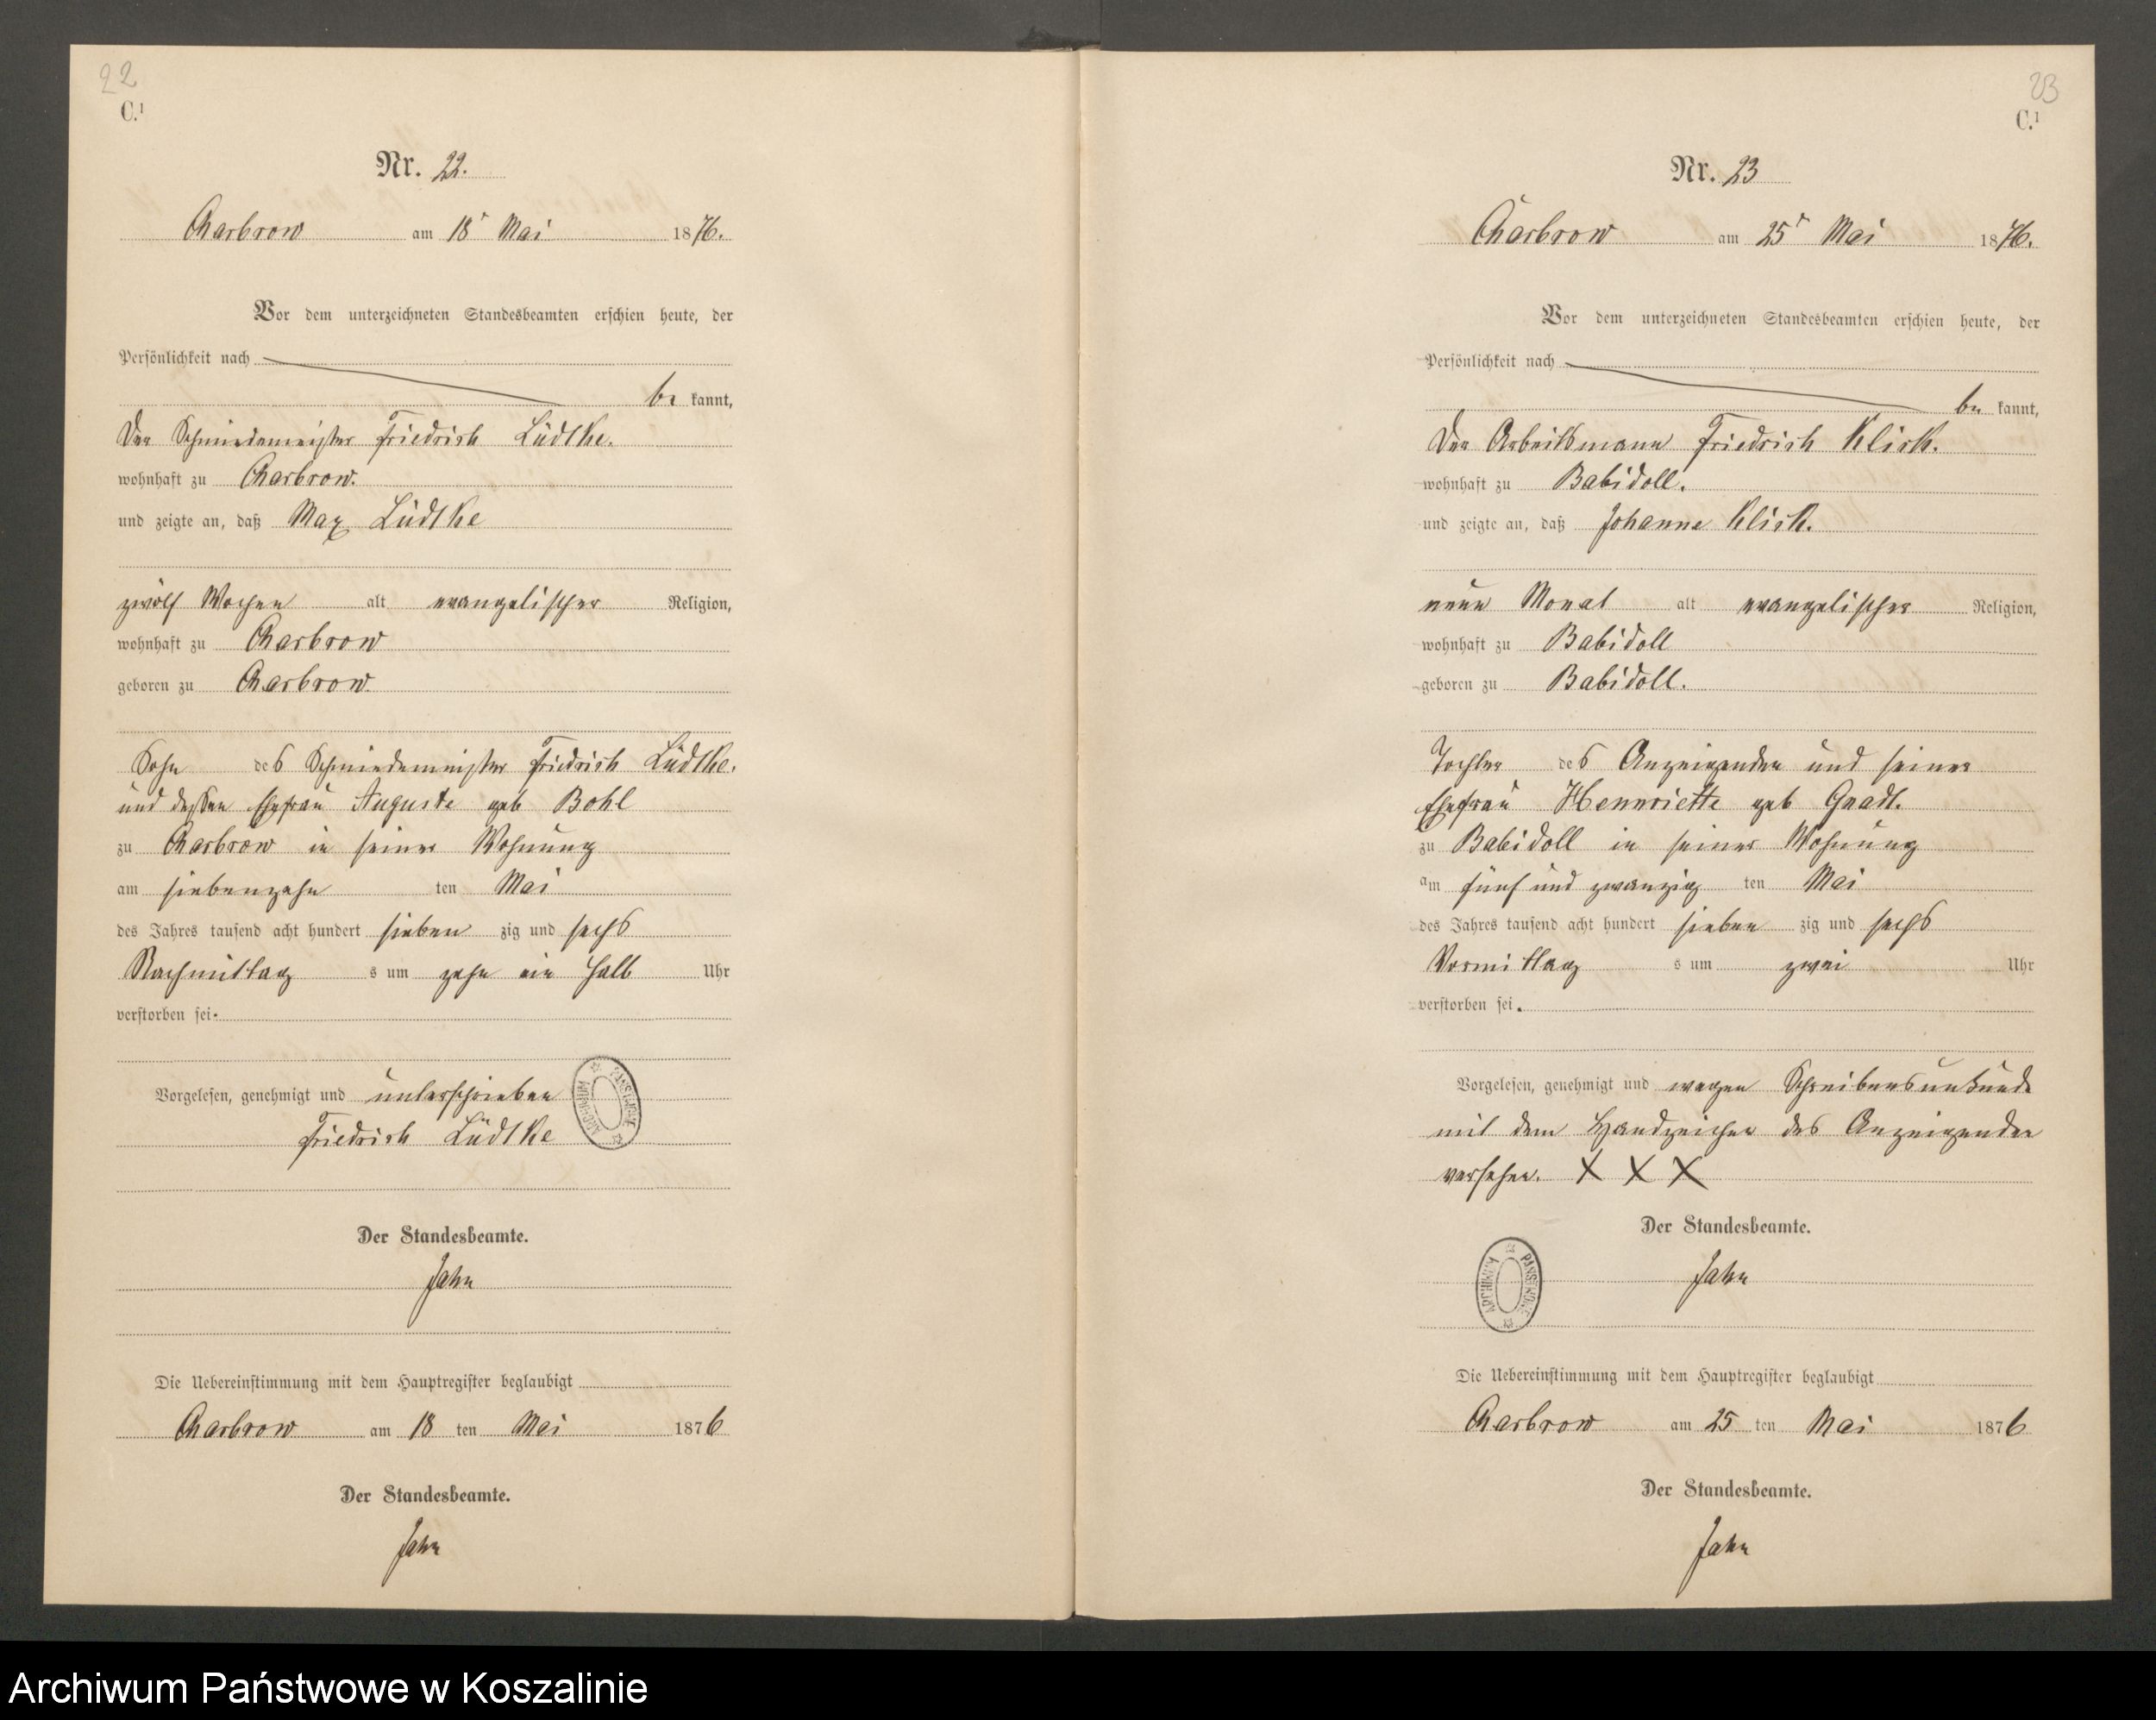 22
C.¹
Nr. 22.
Charbrow am 18t Mai 1876.
Vor dem unterzeichneten Standesbeamten erschien heute, der
Persönlichkeit nach
be kannt,
Der Schmiedemeister Friedrich Lüdtke.
wohnhaft zu Charbrow.
und zeigte an, daß Max Lüdtke
zwölf Wochen alt evangelischer Religion,
wohnhaft zu Charbrow
geboren zu Charbrow.
Sohn des Schmiedemeister Friedrich Lüdtke.
und dessen Ehefrau Auguste geb Bohl
zu Charbrow in seiner Wohnung
am siebenzehn ten Mai
des Jahres tausend acht hundert sieben zig und sechs
Nachmittag s um zehn ein halb Uhr
verstorben sei.
Vorgelesen, genehmigt und unterschrieben
Friedrich Lüdtke
ARCHIWUM PAŃSTWOWE
Der Standesbeamte.
Jahn
Die Uebereinstimmung mit dem Hauptregister beglaubigt
Charbrow am 18 ten Mai 1876
Der Standesbeamte.
Jahn
23
C.¹
Nr. 23
Charbrow am 25t Mai 1876.
Vor dem unterzeichneten Standesbeamten erschien heute, der
Persönlichkeit nach
be kannt,
Der Arbeitsmann Friedrich Klick.
wohnhaft zu Babidoll.
und zeigte an, daß Johanne Klick.
neun Monat alt evangelischer Religion,
wohnhaft zu Babidoll
geboren zu Babidoll.
Tochter des Anzeigenden und seiner
Ehefrau Hennriette geb Gnadt.
zu Babidoll in seiner Wohnung
am fünf und zwanzig ten Mai
des Jahres tausend acht hundert sieben zig und sechs
Vormittag s um zwei Uhr
verstorben sei.
Vorgelesen, genehmigt und wegen Schreibensunkunde
mit dem Handzeichen des Anzeigenden
versehen. X X X
Der Standesbeamte.
Jahn
ARCHIWUM PAŃSTWOWE
Die Uebereinstimmung mit dem Hauptregister beglaubigt
Charbrow am 25 ten Mai 1876
Der Standesbeamte.
Jahn
Archiwum Państwowe w Koszalinie